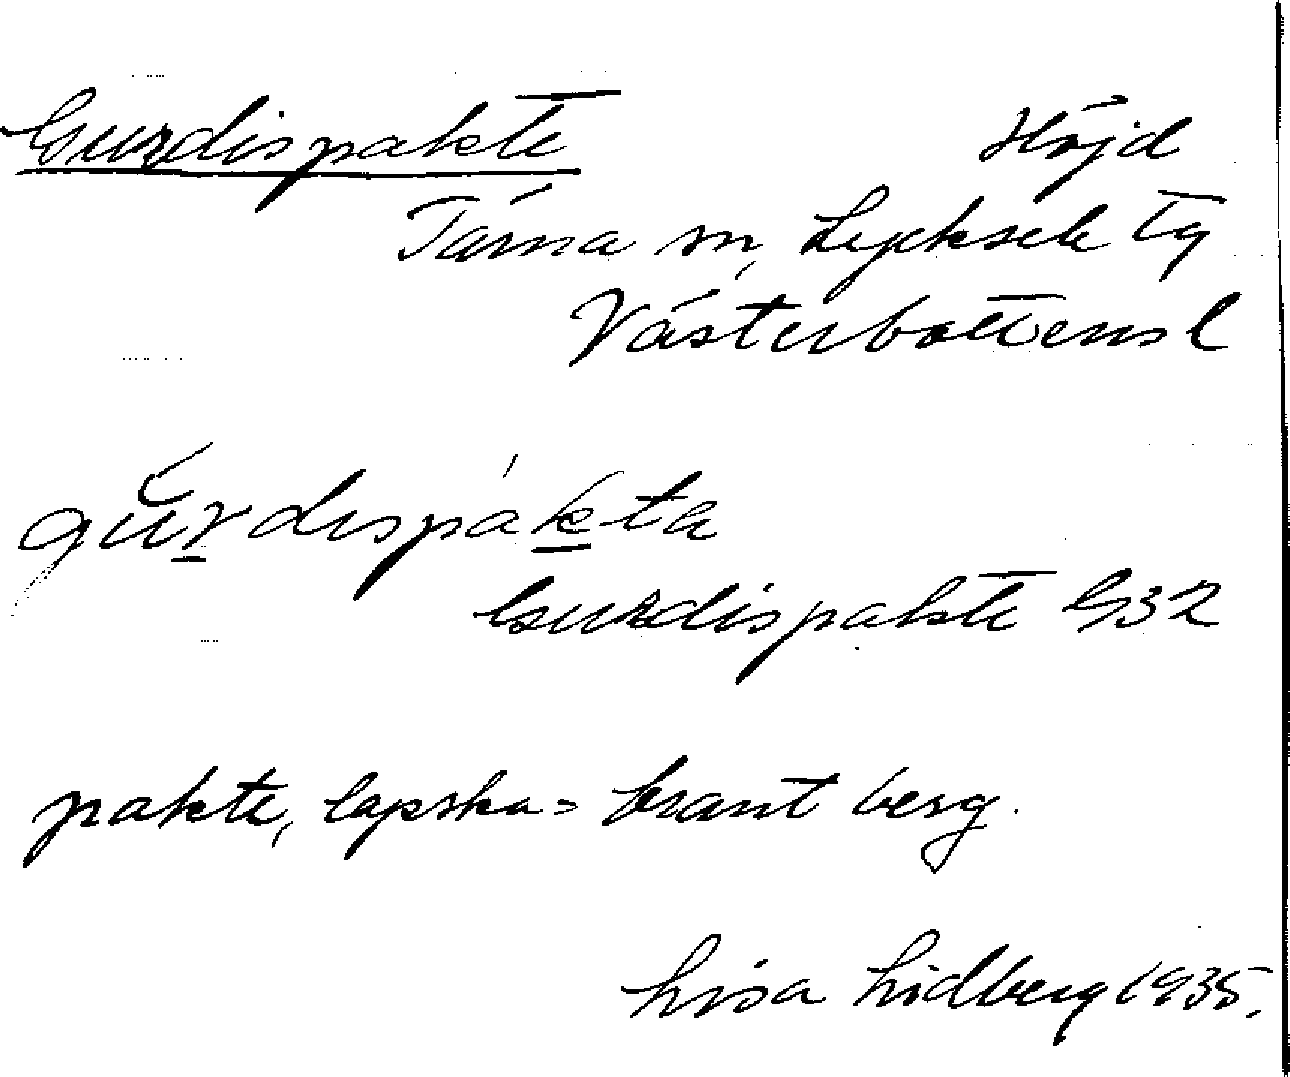 Gurdispakte
Höjd
Tärna sn, Lycksele tg
Västerbottens l
gŭrdispàkta
Gurdispakte G32
pakte, lapska = brant berg.
Lisa Lidberg 1935.